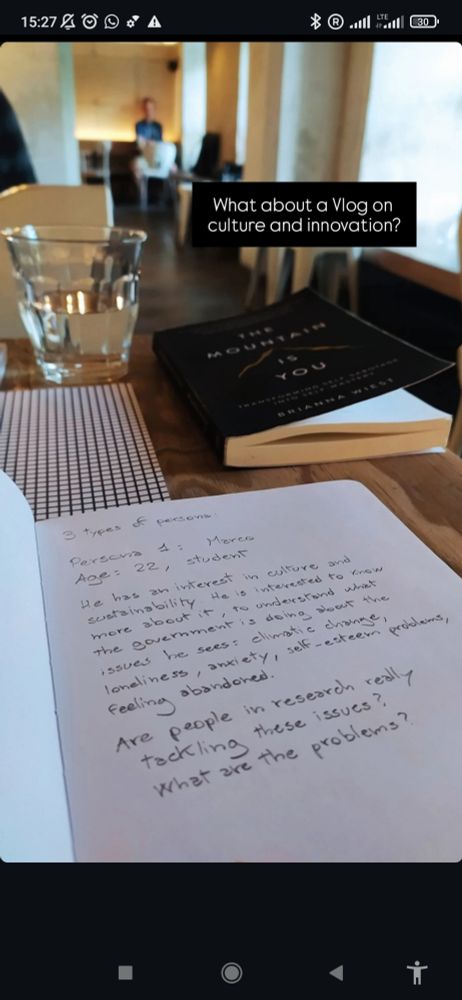 15:27
LTE
30
What about a Vlog on
culture and innovation?
THE
MOUNTAIN
IS
YOU
TRANSFORMING SELF-SABOTAGE
INTO SELF-MASTERY
BRIANNA WIEST
3 types of persona:
Persona 1: Marco
Age: 22, student
He has an interest in culture and
sustainability. He is interested to know
more about it, to understand what
the government is doing about the
issues he sees: climatic change,
loneliness, anxiety, self-esteem problems,
feeling abandoned.
Are people in research really
tackling these issues?
What are the problems?